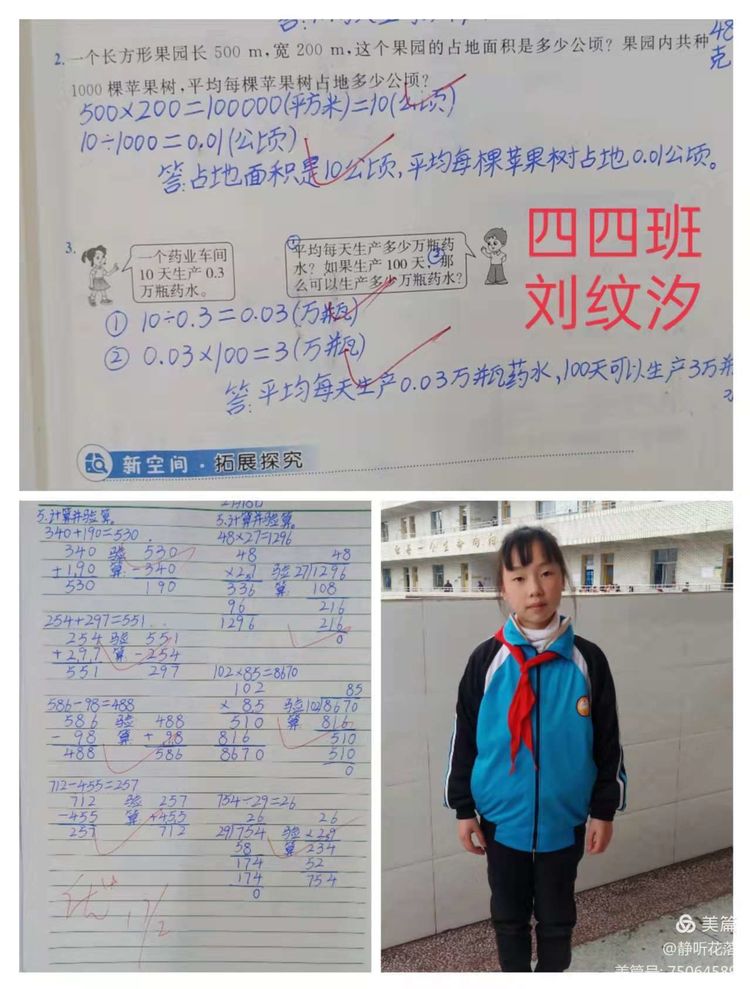 2. 一个长方形果园长 500 m，宽 200 m，这个果园的占地面积是多少公顷？果园内共种
1000 棵苹果树，平均每棵苹果树占地多少公顷？
48
克
500×200=100000(平方米)=10(公顷)
10÷1000=0.01(公顷)
答:占地面积是10公顷,平均每棵苹果树占地0.01公顷。
3.
一个药业车间
10 天生产 0.3
万瓶药水。
①平均每天生产多少万瓶药
水？如果生产 100 天，②那
么可以生产多少万瓶药水？
四四班
刘纹汐
① 10÷0.3=0.03(万瓶)
② 0.03×100=3(万瓶)
答:平均每天生产0.03万瓶药水,100天可以生产3万瓶
新空间·拓展探究
5.计算并验算。
340+190=530
340 验 530
+190 算 -340
530 190
254+297=551
254 验 551
+297 算 -254
551 297
586-98=488
586 验 488
-98 算 +98
488 586
712-455=257
712 验 257
-455 算 +455
257 712
优
1/2
5.计算并验算。
48×27=1296
48 48
×27 验 27/1296
336 算 108
96 216
1296 216
0
102×85=8670
102 85
×85 验 102/8670
510 算 816
816 510
8670 510
0
754-29=26
26 26
29/754 验 ×29
58 算 234
174 52
174 754
0
美篇
@静听花落
美篇号: 75064589